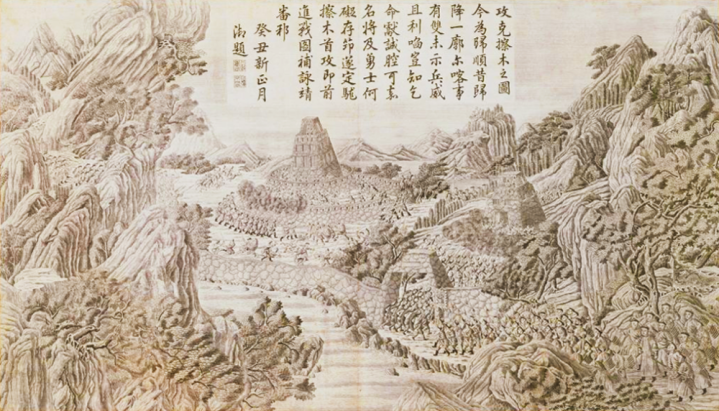 攻克擦木之圖
今為歸順昔歸
降一廓尔喀事
有雙未示兵威
且利啗豈知乞
命獻誠腔可嘉
名將及勇士何
存定
擦木首攻即前
進戰圖補詠靖
番邦
癸丑新正月
御題